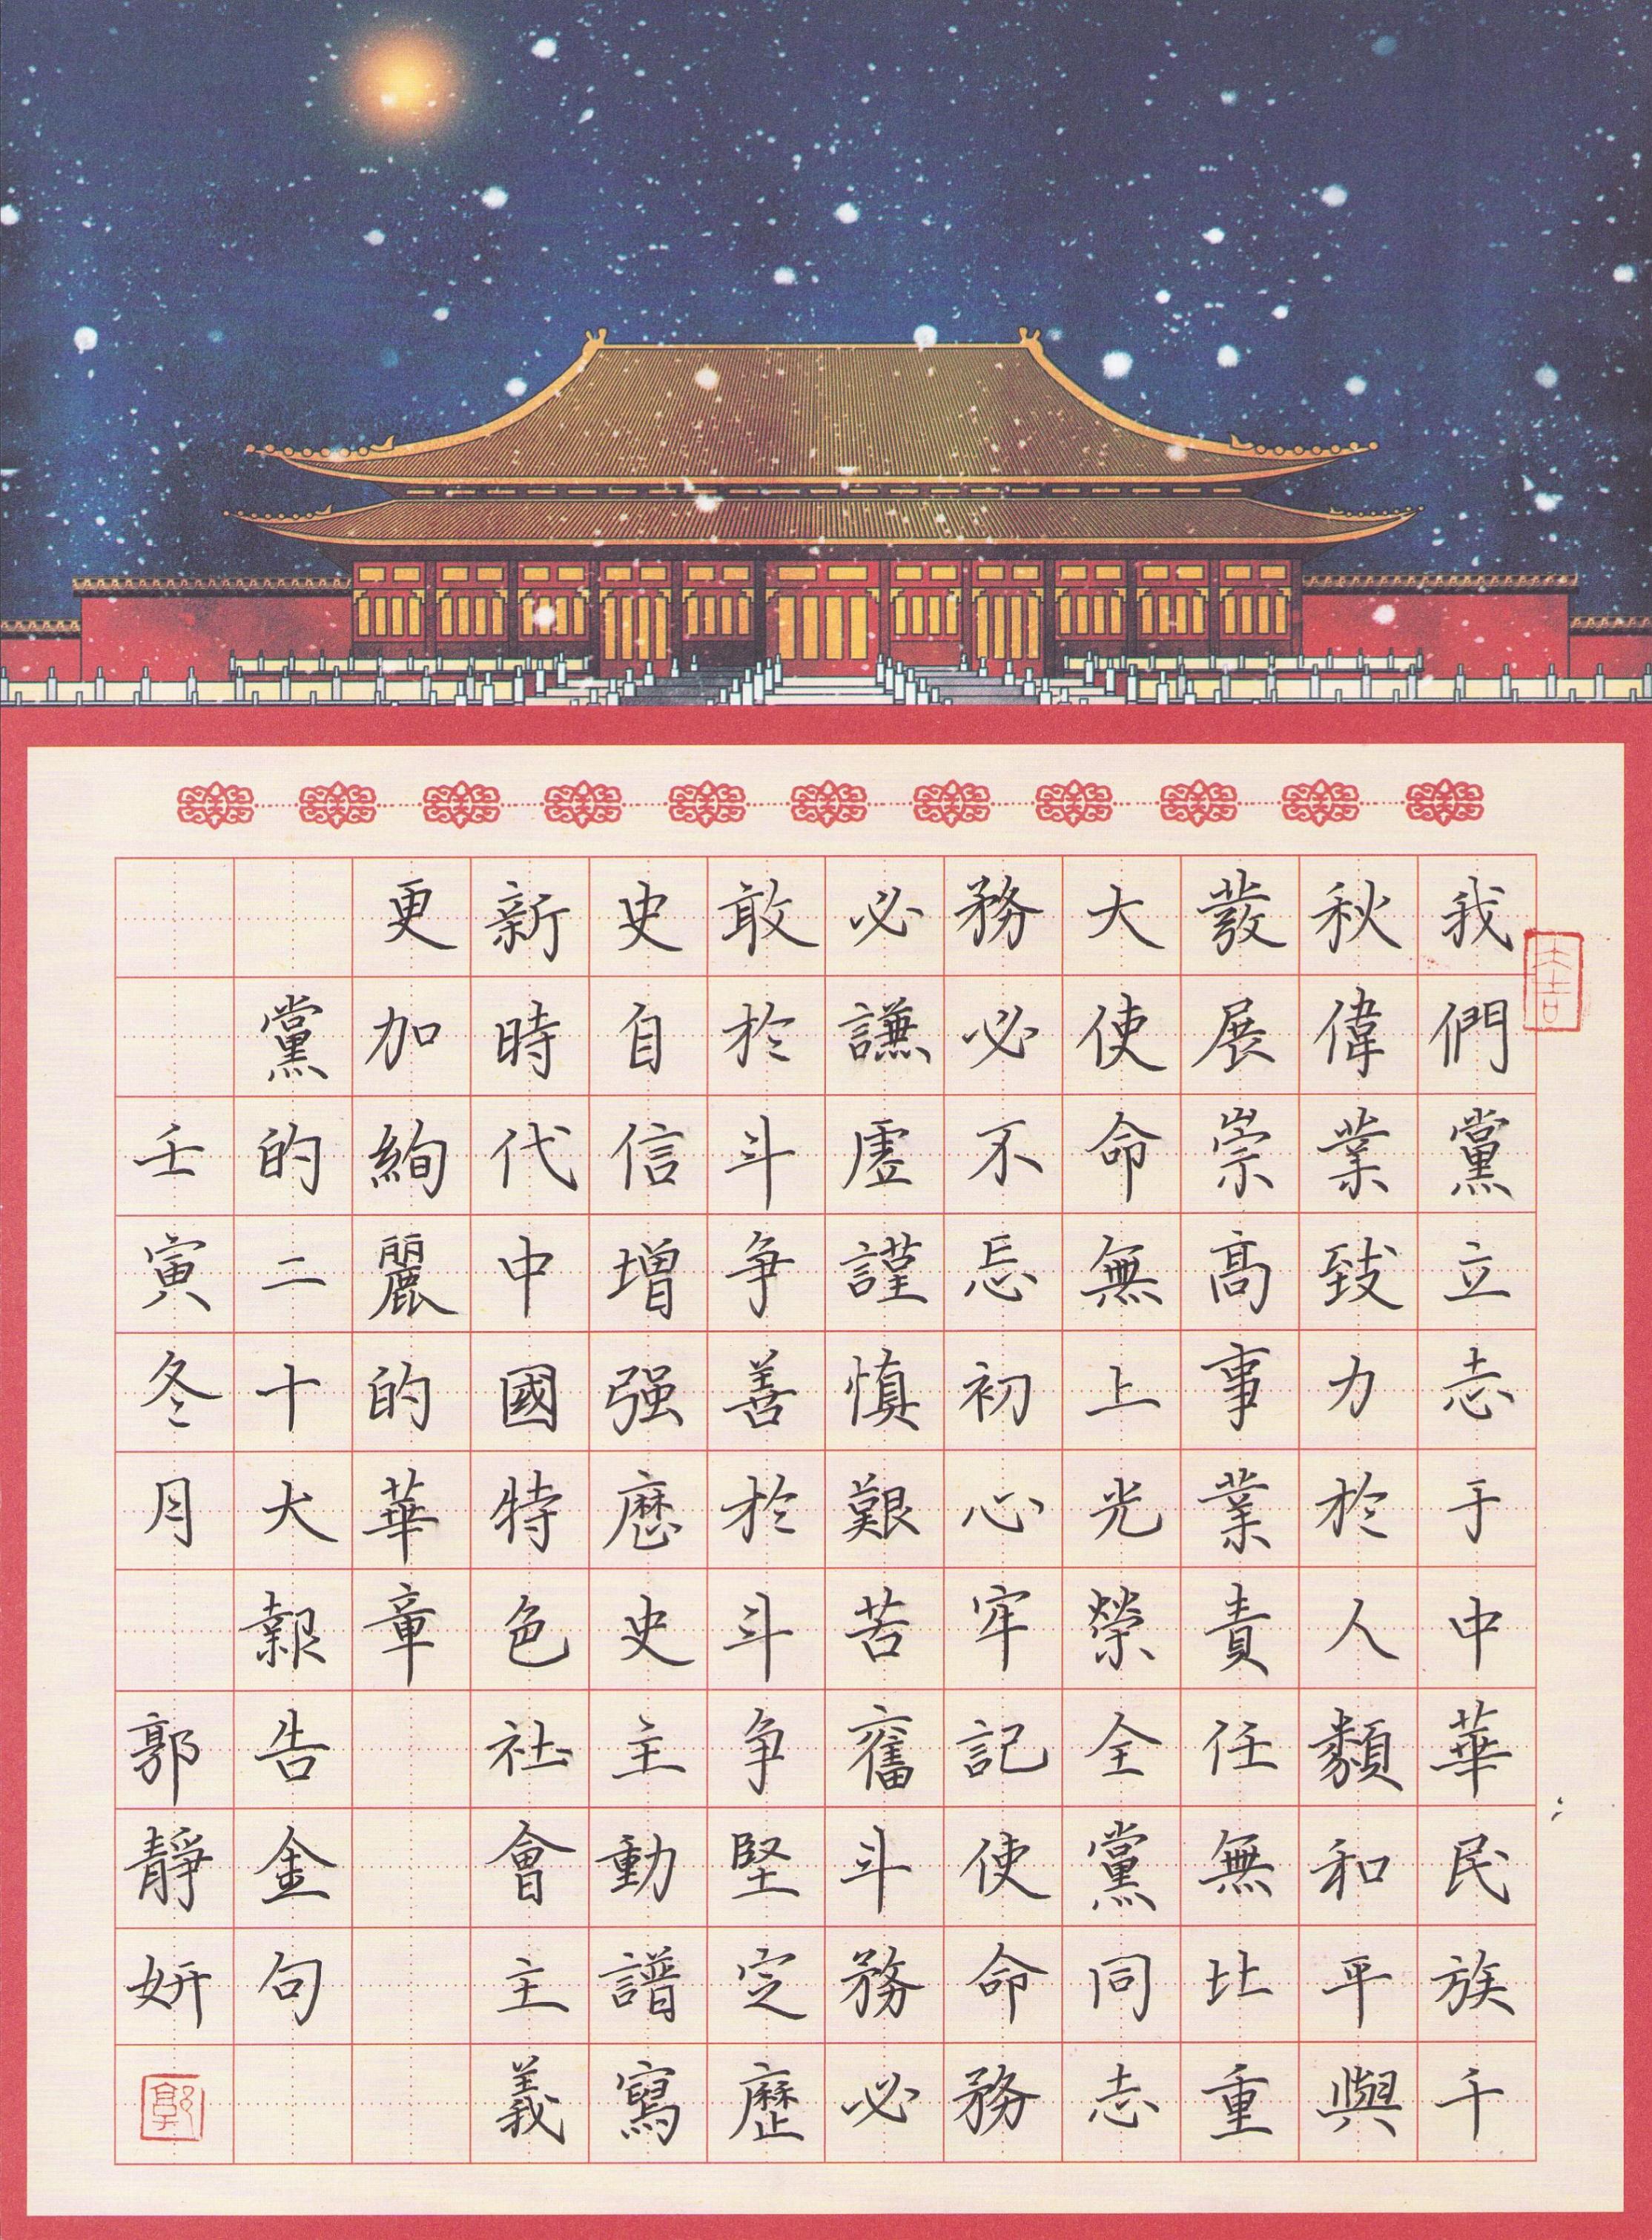 我們黨立志于中華民族千
秋偉業致力於人類和平與
發展崇高事業責任無比重
大使命無上光榮全黨同志
務必不忘初心牢記使命務
必謙虛謹慎艱苦奮鬥務必
敢於斗爭善於斗爭堅定歷
史自信增强歷史主動譜寫
新時代中國特色社會主義
更加絢麗的華章
黨的二十大報告金句
壬寅冬月 郭靜妍
大吉
郭